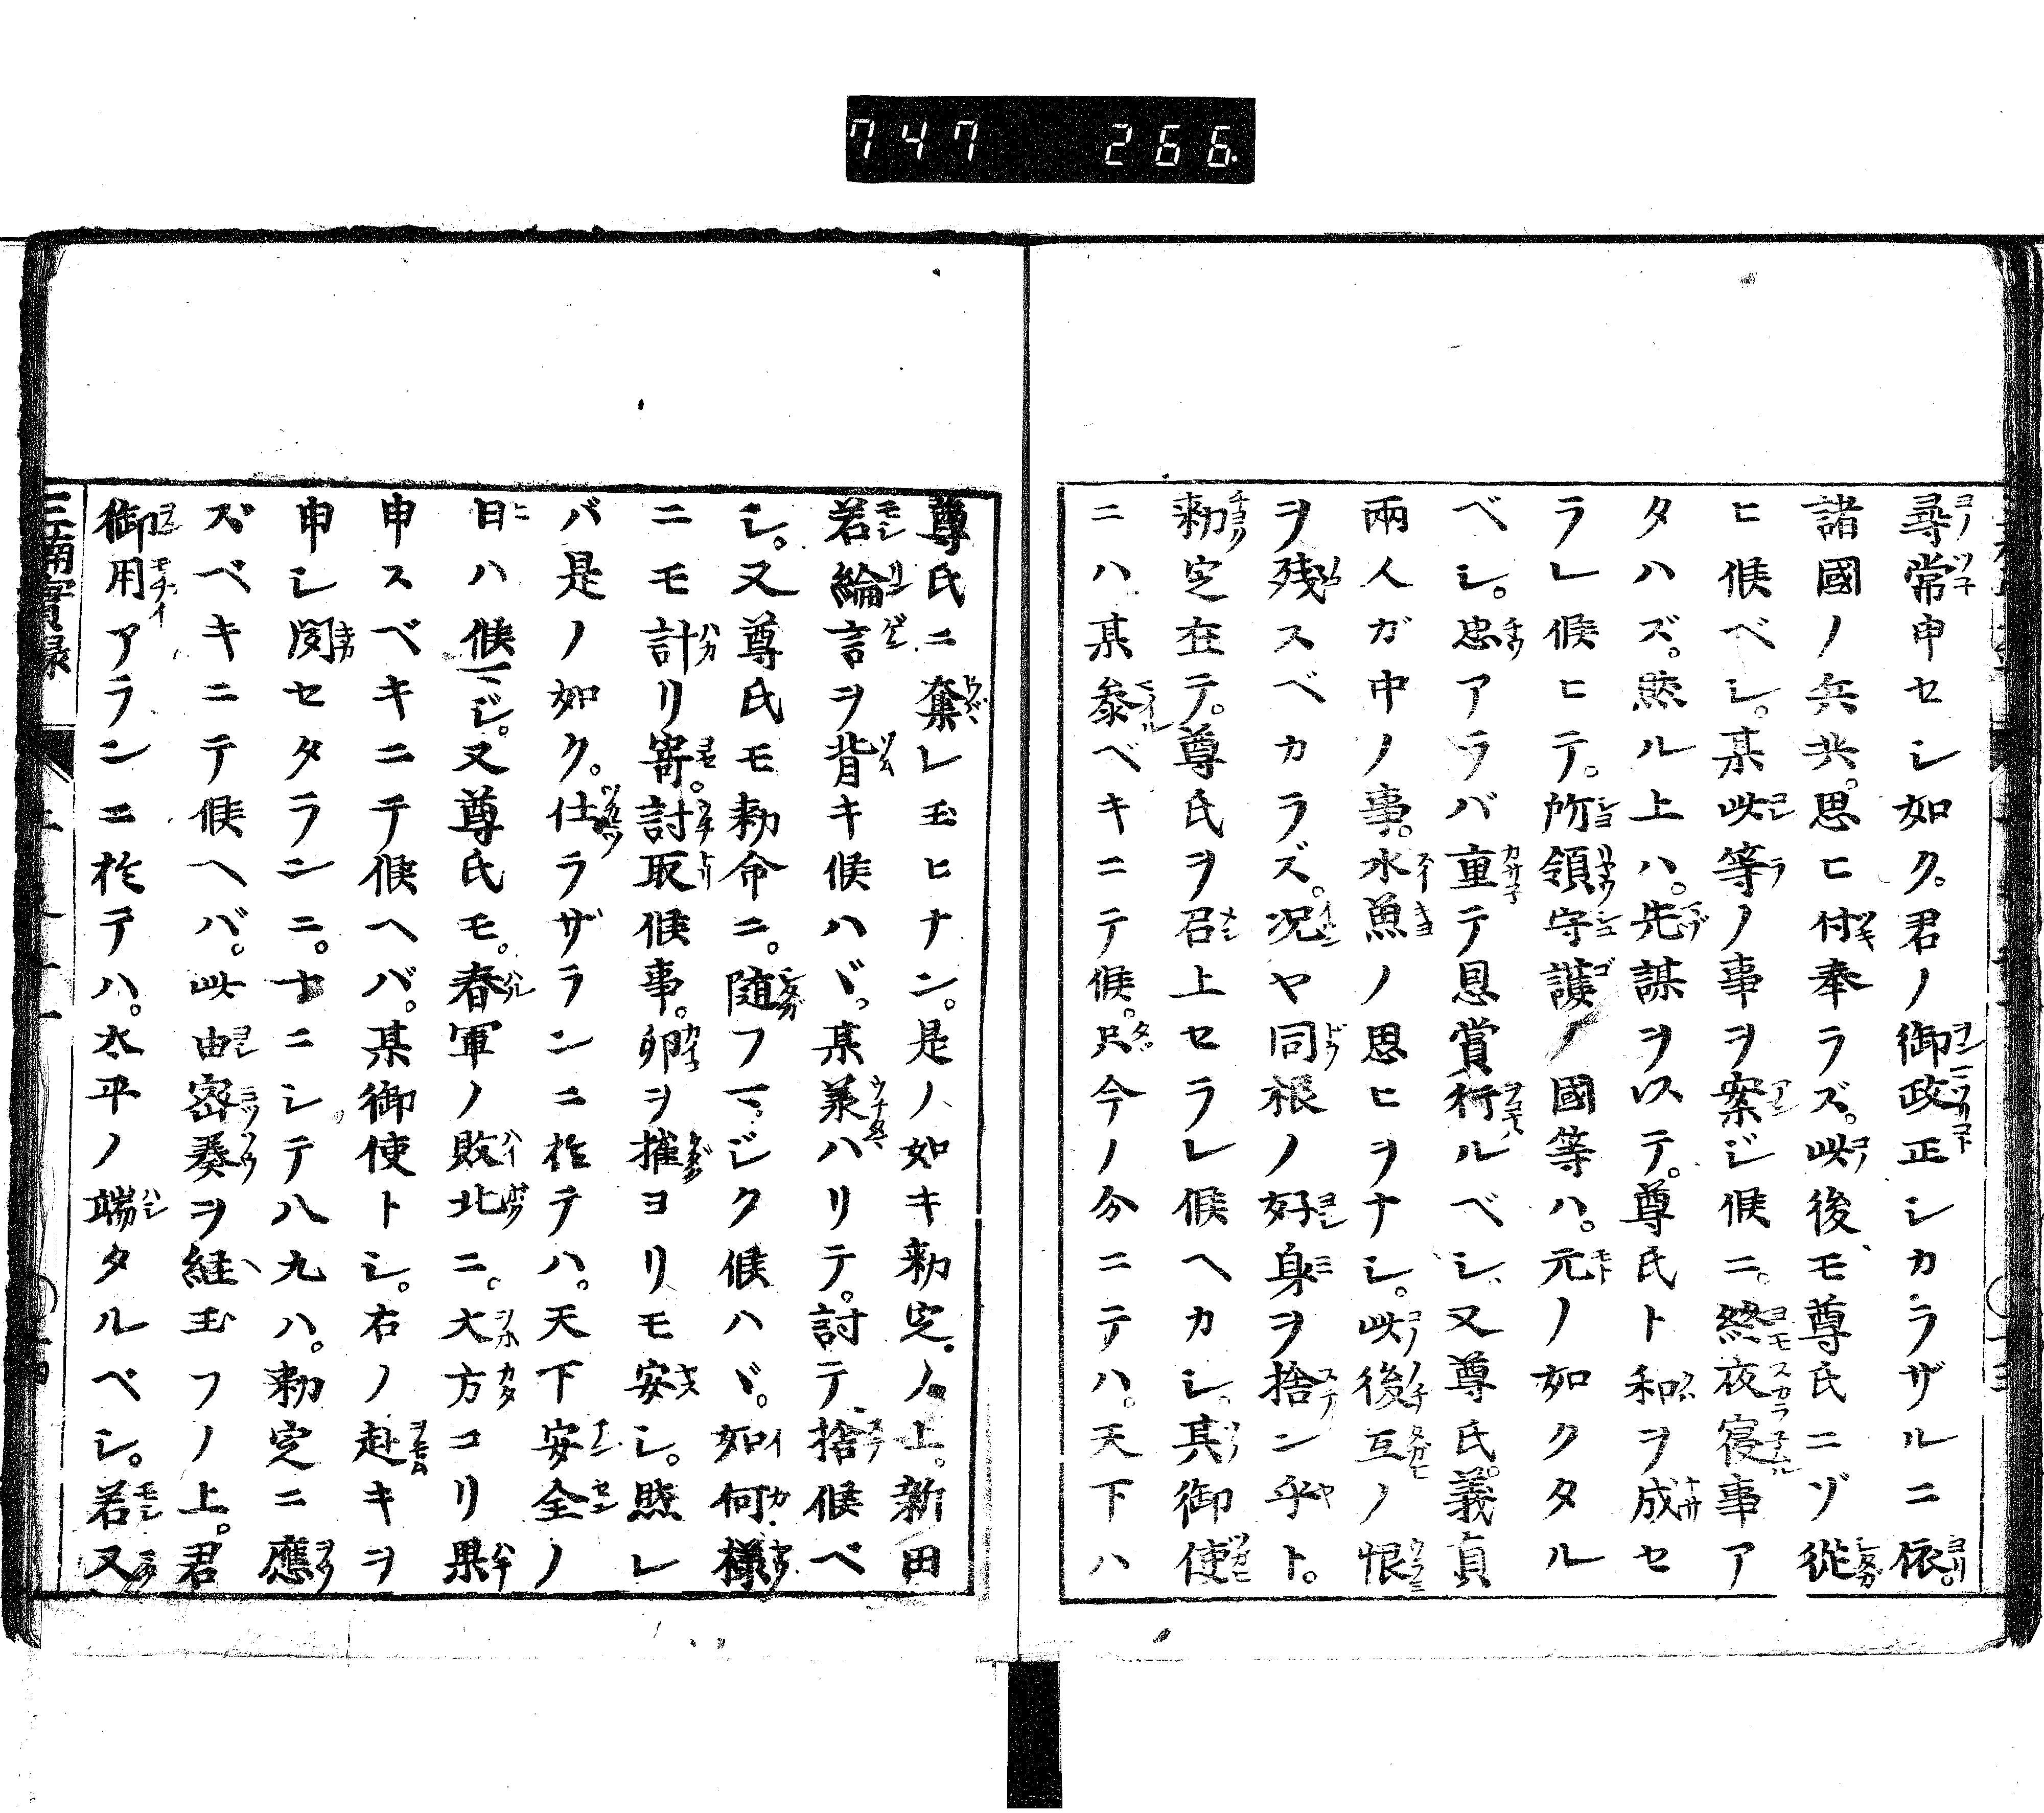 747 266
尋常申セシ如ク。君ノ御政正シカラザルニ依。
諸國ノ兵共。思ヒ付奉ラズ。此後モ尊氏ニゾ從
ヒ候ベシ。某此等ノ事ヲ案ジ候ニ。終夜寝事ア
タハズ。然ル上ハ。先謀ヲ以テ。尊氏ト和ヲ成セ
ラレ候ヒテ。所領守護ノ國等ハ。元ノ如クタル
ベシ。忠アラバ重テ恩賞行ルベシ、又尊氏。義貞
兩人ガ中ノ事。水魚ノ思ヒヲナシ。此後互ノ恨
ヲ残スベカラズ。况ヤ同根ノ好身ヲ捨ン乎ト。
勅定在テ。尊氏ヲ召上セラレ候ヘカシ。其御使
ニハ某參ベキニテ候。只今ノ分ニテハ。天下ハ
尊氏ニ奪レ玉ヒナン。是ノ如キ勅定ノ上。新田
若綸言ヲ背キ候ハヾ。某兼ハリテ。討テ捨候ベ
シ。又尊氏モ勅命ニ。随フマジク候ハヾ。如何樣
ニモ計リ寄。討取候事。卵ヲ摧ヨリモ安シ。然レ
バ是ノ如ク。仕ラザランニ於テハ。天下安全ノ
日ハ候マジ。又尊氏モ。春軍ノ敗北ニ。大方コリ果
申スベキニテ候ヘバ。某御使トシ。右ノ赴キヲ
申シ聞セタランニ。十ニシテ八九ハ。勅定ニ應
ズベキニテ候ヘバ。此由密奏ヲ経玉フノ上。君
御用アランニ於テハ。太平ノ端タルベシ。若又
三楠實録